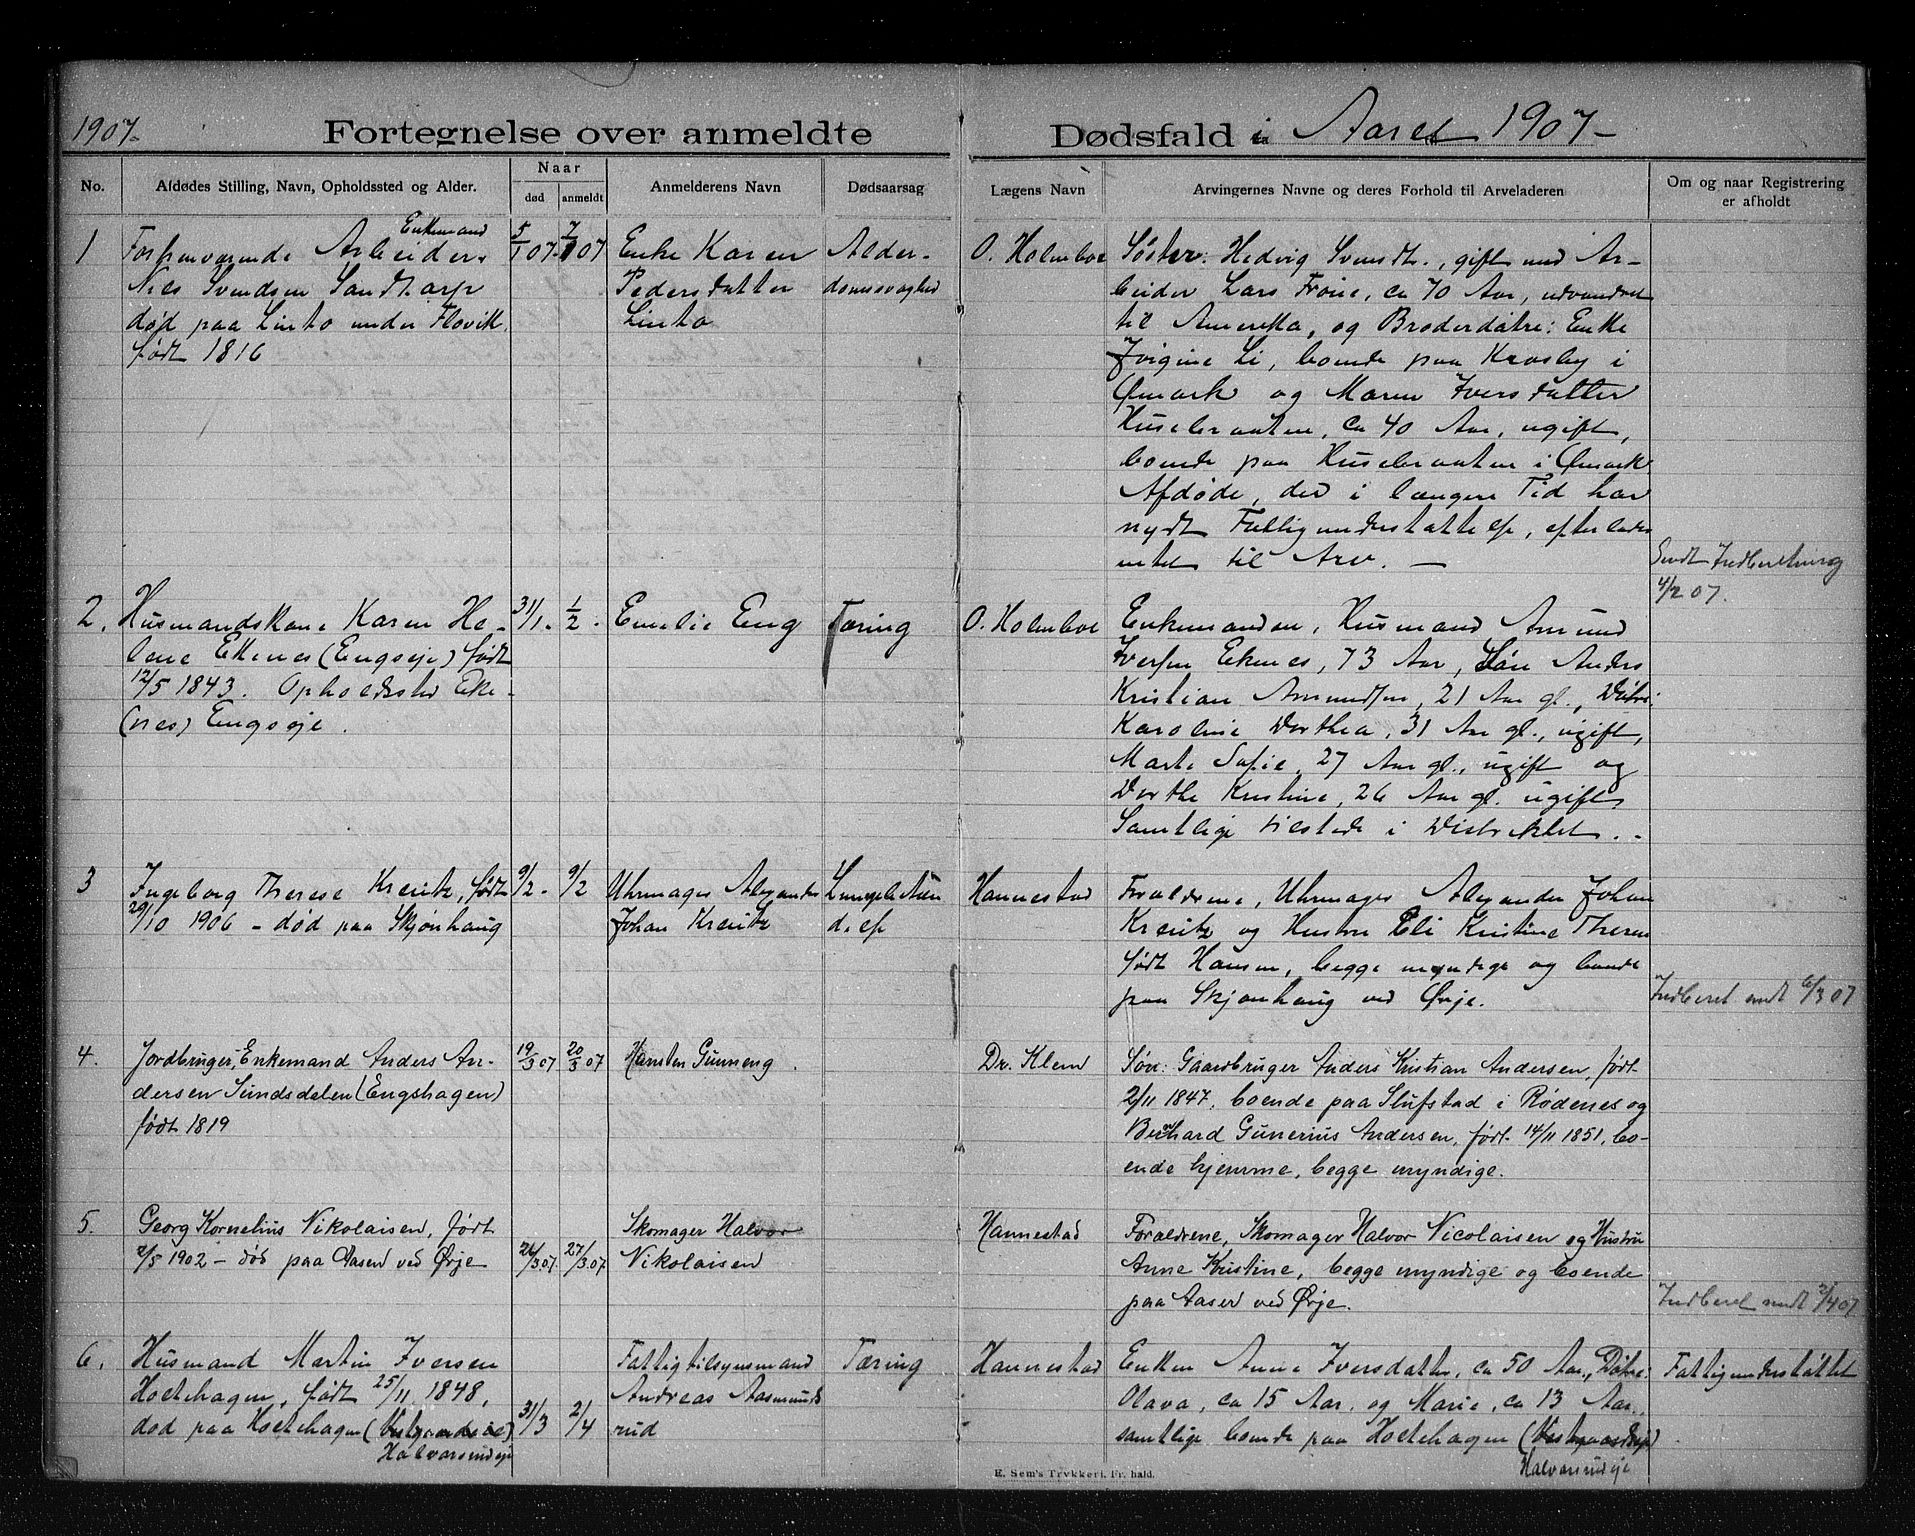 1907-
Fortegnelse over anmeldte Dødsfald i Aaret 1907-
No.
Afdødes Stilling, Navn, Opholdssted og Alder.
Naar
død
anmeldt
Anmelderens Navn
Dødsaarsag
Lægens Navn
Arvingernes Navne og deres Forhold til Arveladeren
Om og naar Registrering
er afholdt
1
Enkemand
Forhenværende Arbeider
Nils Svendsen Sandtorp
død paa Linto under Flovik
født 1816
5/1 07.
7/1 07
Enke Karen
Pedersdatter
Linto
Alder-
domssvaghed
O. Holmboe
Søster: Hedvig Svendst., gift med Ar-
beider Lars Frøne, ca 70 Aar, udvandret
til Amerika, og Broderdøtre: Enke
Jvigine Li, boende paa Krosby i
Ømark og Maren Iversdatter
Husebraaten, ca 40 Aar, ugift,
boende paa Husebraaten i Ømark
Afdøde, der i længere Tid har
nydt Fattigunderstøttelse, efterlader
intet til Arv. —
Sendt Indberetning
4/2 07.
2.
Husmandskone Karen He-
lene Ekenes (Engsøje) født
12/5 1843. Opholdssted Eke-
(nes) Engsøje.
31/1.
1/2.
Emelie Eng
Tæring
O. Holmboe
Enkemanden, Husmand Amund
Iversen Ekenes, 73 Aar, Søn Anders
Kristian Amundsen, 21 Aar gl., Døtre:
Karoline Dorthea, 31 Aar gl., ugift,
Marte Sofie, 27 Aar gl., ugift og
Dorthe Kristine, 26 Aar gl. ugift,
Samtlige tilstede i Distriktet. -
3
Ingeborg Therese Kreutz, født
29/10 1906 - død paa Skjønhaug
9/2-
9/2
Uhrmager Alexander
Johan Kreutz
Lungebetæn
delse
Hannestad
Forældrene, Uhrmager Alexander Johan
Kreutz og Hustru Eli Kristine Therese
født Hansen, begge myndige og boende
paa Skjønhaug ved Ørje.
Indberet sendt 6/3 07
4.
Jordbruger, Enkemand Anders An-
dersen Sundsdalen (Engshagen)
født 1819
19/3 07
20/3 07
Karsten Gunneng.
Dr. Klem
Søn: Gaardbruger Anders Kristian Andersen, født
2/11 1847, boende paa Slufstad i Rødenes og
Bernhard Gunerius Andersen, født 14/11 1851, bo-
ende hjemme, begge myndige.
5.
Georg Kornelius Nikolaisen, født
2/5 1902 - død paa Aasen ved Ørje
26/3.07.
27/3.07
Skomager Halvor
Nikolaisen
Hannestad
Forældrene, Skomager Halvor Nicolaisen og Hustru
Anne Kristine, begge myndige og boende
paa Aasen ved Ørje.
Indberet sendt 2/4 07
6.
Husmand Martin Iversen
Hoetehagen, født 25/11 1848,
død paa Hoetehagen (Vestgaardseie)
Halvorsrudeje
31/3
2/4
Fattigtilsynsmand
Andreas Aasmunds
rud
Tæring
Hannestad
Enken Anne Iversdatter, ca 50 Aar, Døtre:
Olava, ca 15 Aar, og Marie, ca 13 Aar,
samtlige boende paa Hoetehagen (Vestgaardseje)
Halvorsrudeje
Fattigunderstøttet
E. Sem's Trykkeri. Fr. hald.